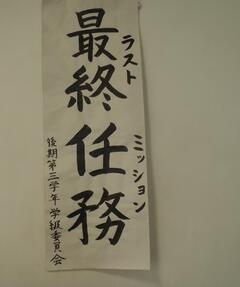 最終任務
ラストミッション
後期第三学年学級委員会